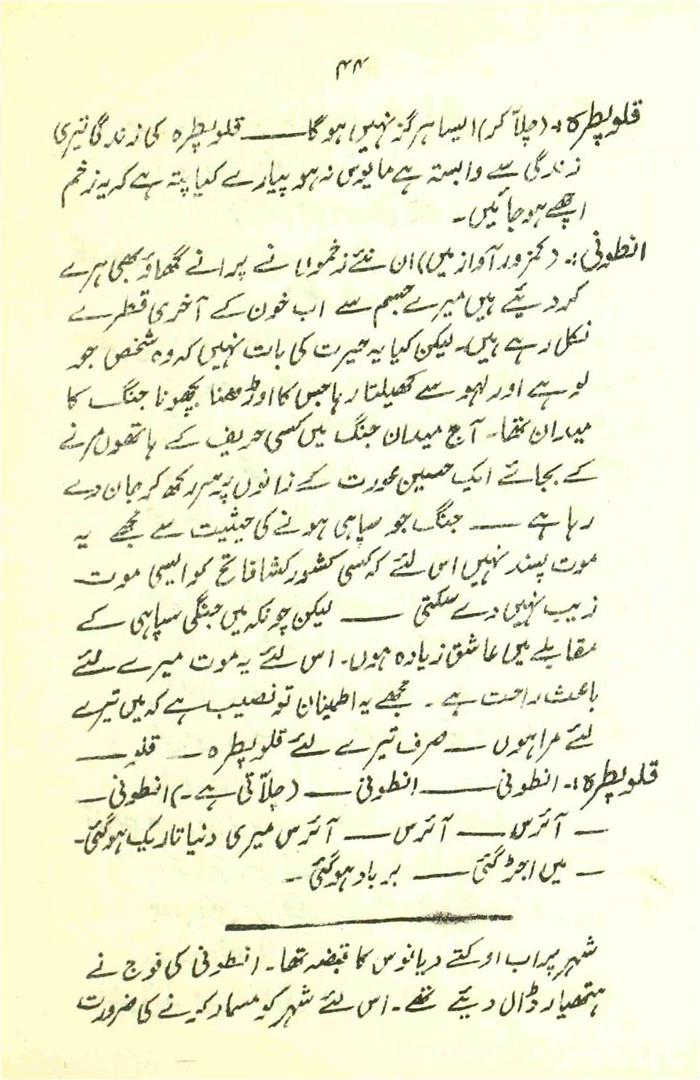 ۴۴
قلوپطرہ :۔ (چلّا کر) ایسا ہرگز نہیں ہوگا ــــ قلوپطرہ کی زندگی تیری
زندگی سے وابستہ ہے مایوس نہ ہو پیارے کیا پتہ ہے کہ یہ زخم
اچھے ہو جائیں۔
انطونی :۔ (کمزور آواز میں) ان نئے زخموں نے پرانے گھاؤ بھی ہرے
کر دیئے ہیں میرے جسم سے اب خون کے آخری قطرے
نکل رہے ہیں۔ لیکن کیا یہ حیرت کی بات نہیں کہ وہ شخص جو
لوہے اور لہو سے کھیلتا رہا جس کا اوڑھنا بچھونا جنگ کا
میدان تھا۔ آج میدان جنگ میں کسی حریف کے ہاتھوں مرنے
کے بجائے ایک حسین عورت کے زانوں پر سر رکھ کر جان دے
رہا ہے ــــ جنگ جو سپاہی ہونے کی حیثیت سے مجھے یہ
موت پسند نہیں اس لئے کہ کسی کشور کشا فاتح کو ایسی موت
زیب نہیں دے سکتی ــــ لیکن چونکہ میں جنگی سپاہی کے
مقابلے میں عاشق زیادہ ہوں۔ اس لئے یہ موت میرے لئے
باعث راحت ہے۔ مجھے یہ اطمینان تو نصیب ہے کہ میں تیرے
لئے مرا ہوں ــــ صرف تیرے لئے قلوپطرہ ــ قلو ــــ
قلوپطرہ :۔ انطونی ــــ انطونی ــــ (چلّاتی ہے۔) انطونی ــ
ــ آئرس ــــ آئرس ــــ آئرس میری دنیا تاریک ہو گئی۔
ــ میں اجڑ گئی ــــ برباد ہو گئی۔
شہر پر اب اوکتے دیانوس کا قبضہ تھا۔ انطونی کی فوج نے
ہتھیار ڈال دیئے تھے۔ اس لئے شہر کو مسمار کرنے کی ضرورت